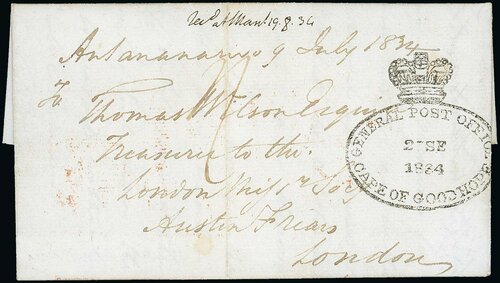 Recd at Maur! 19.8.34
Antananarivo 9 July 1834
To
Thomas Wilson Esquire
Treasurer to the
London Missy Socy
Austin Friars
London
GENERAL POST OFFICE
2 SE
1834
CAPE OF GOOD HOPE